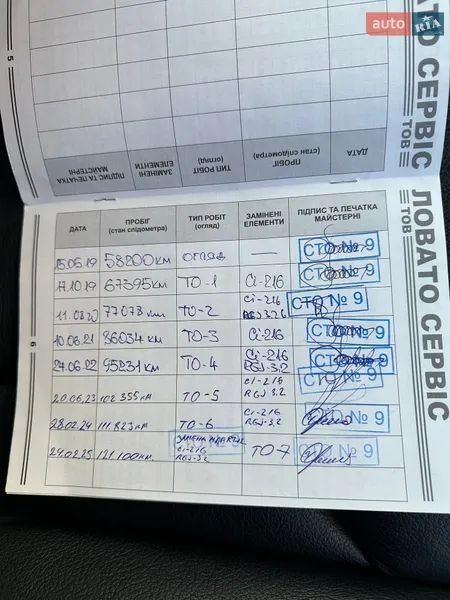 auto RIA
5
ДАТА
ПРОБІГ
(стан спідометра)
ТИП РОБІТ
(огляд)
ЗАМІНЕНІ
ЕЛЕМЕНТИ
ПІДПИС ТА ПЕЧАТКА
МАЙСТЕРНІ
ТОВ ЛОВАТО СЕРВІС
ДАТА
ПРОБІГ
(стан спідометра)
ТИП РОБІТ
(огляд)
ЗАМІНЕНІ
ЕЛЕМЕНТИ
ПІДПИС ТА ПЕЧАТКА
МАЙСТЕРНІ
15.06.19 58200км огляд — СТО № 9
17.10.19 67395км ТО-1 Ci-216 СТО № 9
77078км ТО-2 Ci-216 RGJ 3.2 СТО № 9
10.06.21 86034км ТО-3 Ci-216 СТО № 9
95231км ТО-4 Ci-216 RGJ-3.2 СТО № 9
20.06.23 102 355км ТО-5 Ci-216 RGJ 3.2 СТО № 9
28.02.24 111 823км ТО-6 Ci-216 RGJ-3.2 СТО № 9
24.02.25 121 100км Ci-216 RGJ-3.2 ТО-7 СТО № 9
6
ТОВ ЛОВАТО СЕРВІС